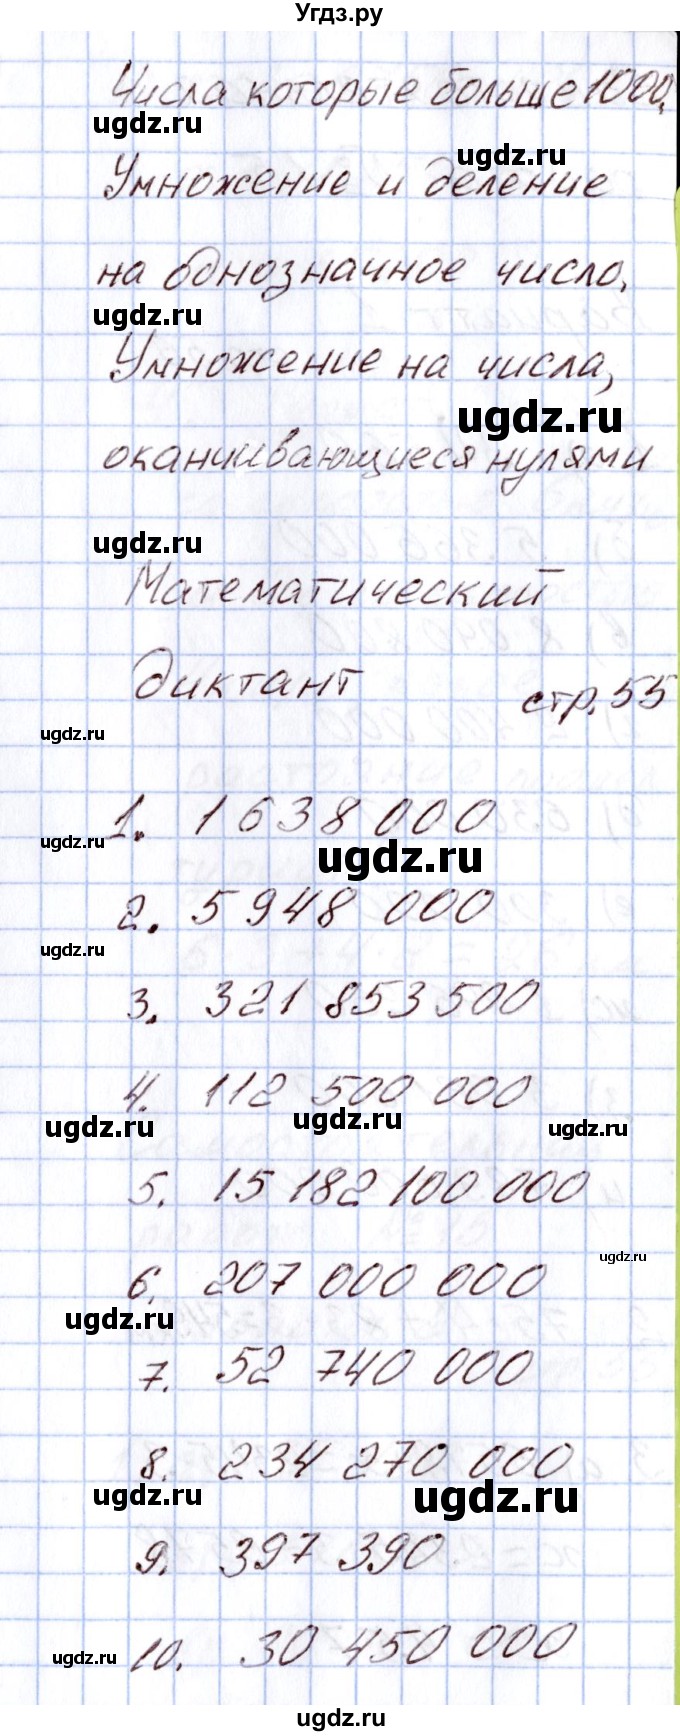 Угдз.ру
Числа которые больше 1000.
ugdz.ru
ugdz.ru
Умножение и деление
на однозначное число.
ugdz.ru
Умножение на числа,
ugdz.ru
оканчивающиеся нулями
ugdz.ru
Математический
диктант стр. 55
ugdz.ru
1. 1 638 000
ugdz.ru
ugdz.ru
2. 5 948 000
ugdz.ru
3. 321 853 500
4. 112 500 000
ugdz.ru ugdz.ru ugdz.ru
5. 15 182 100 000
ugdz.ru
6. 207 000 000
ugdz.ru
7. 52 740 000
8. 234 270 000
ugdz.ru ugdz.ru
9. 397 390
10. 30 450 000
ugdz.ru
ugdz.ru